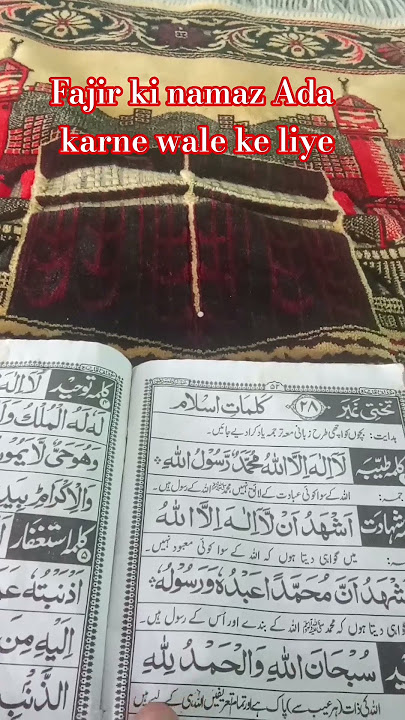 Fajir ki namaz Ada
karne wale ke liye
۵۲
تختی نمبر ۲۸ کلمات اسلام
ہدایت: بچوں کو اچھی طرح زبانی معہ ترجمہ یاد کرا دیے جائیں۔
کلمہ طیبہ لَا اِلٰهَ اِلَّا اللهُ مُحَمَّدٌ رَّسُوْلُ اللهِ
اللہ کے سوا کوئی عبادت کے لائق نہیں محمد ﷺ اللہ کے رسول ہیں۔
شہادت اَشْهَدُ اَنْ لَّا اِلٰهَ اِلَّا اللهُ
میں گواہی دیتا ہوں کہ اللہ کے سوا کوئی معبود نہیں۔
شْهَدُ اَنَّ مُحَمَّدًا عَبْدُهٗ وَرَسُوْلُهٗ
دیتا ہوں کہ محمد ﷺ اللہ کے بندے اور اُس کے رسول ہیں۔
سُبْحَانَ اللهِ وَالْحَمْدُ لِلّٰهِ
اللہ کی ذات (ہر عیب سے) پاک ہے اور تمام تعریفیں اللہ ہی کے لیے ہیں
کلمہ توحید لَا اِلٰهَ
لَهٗ لَهُ الْمُلْكُ وَلَ
وَهُوَ حَیٌّ لَّا یَمُوْ
وَالْاِكْرَامِ بِیَدِ
کلمہ استغفار
۵
اَذْنَبْتُهٗ عَمَ
اِلَیْهِ مِنَ
الذَّنْبِ